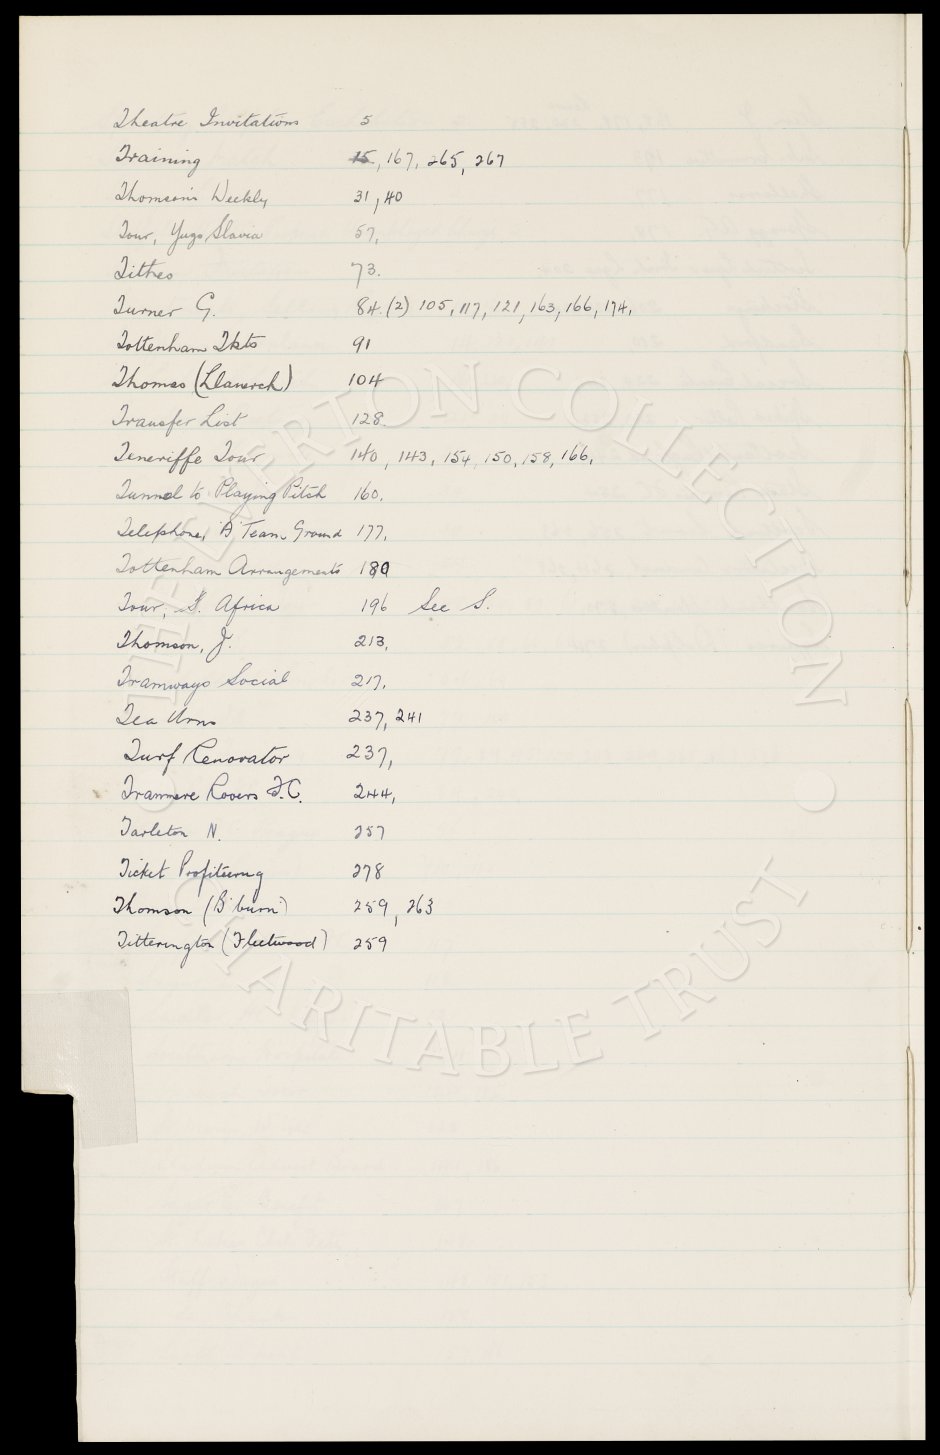 Theatre Invitations 5
Training 15, 167, 265, 267
Thomson's Weekly 31, 40
Tour, Yugo Slavia 57,
Tithes 73.
Turner G. 84.(2) 105, 117, 121, 163, 166, 174,
Tottenham Tkts 91
Thomas (Llanerch) 104
Transfer List 128.
Teneriffe Tour 140, 143, 154, 150, 158, 166,
Tunnel to Playing Pitch 160.
Telephone, 'A' Team Ground 177,
Tottenham Arrangements 189
Tour, S. Africa 196 See S.
Thomson, J. 213,
Tramways Social 217,
Tea Urns 237, 241
Turf Renovator 237,
Tranmere Rovers F.C. 244,
Tarleton N. 257
Ticket Profiteering 278
Thomson (B'burn) 259, 263
Titterington (Fleetwood) 259
THE EVERTON COLLECTION
CHARITABLE TRUST